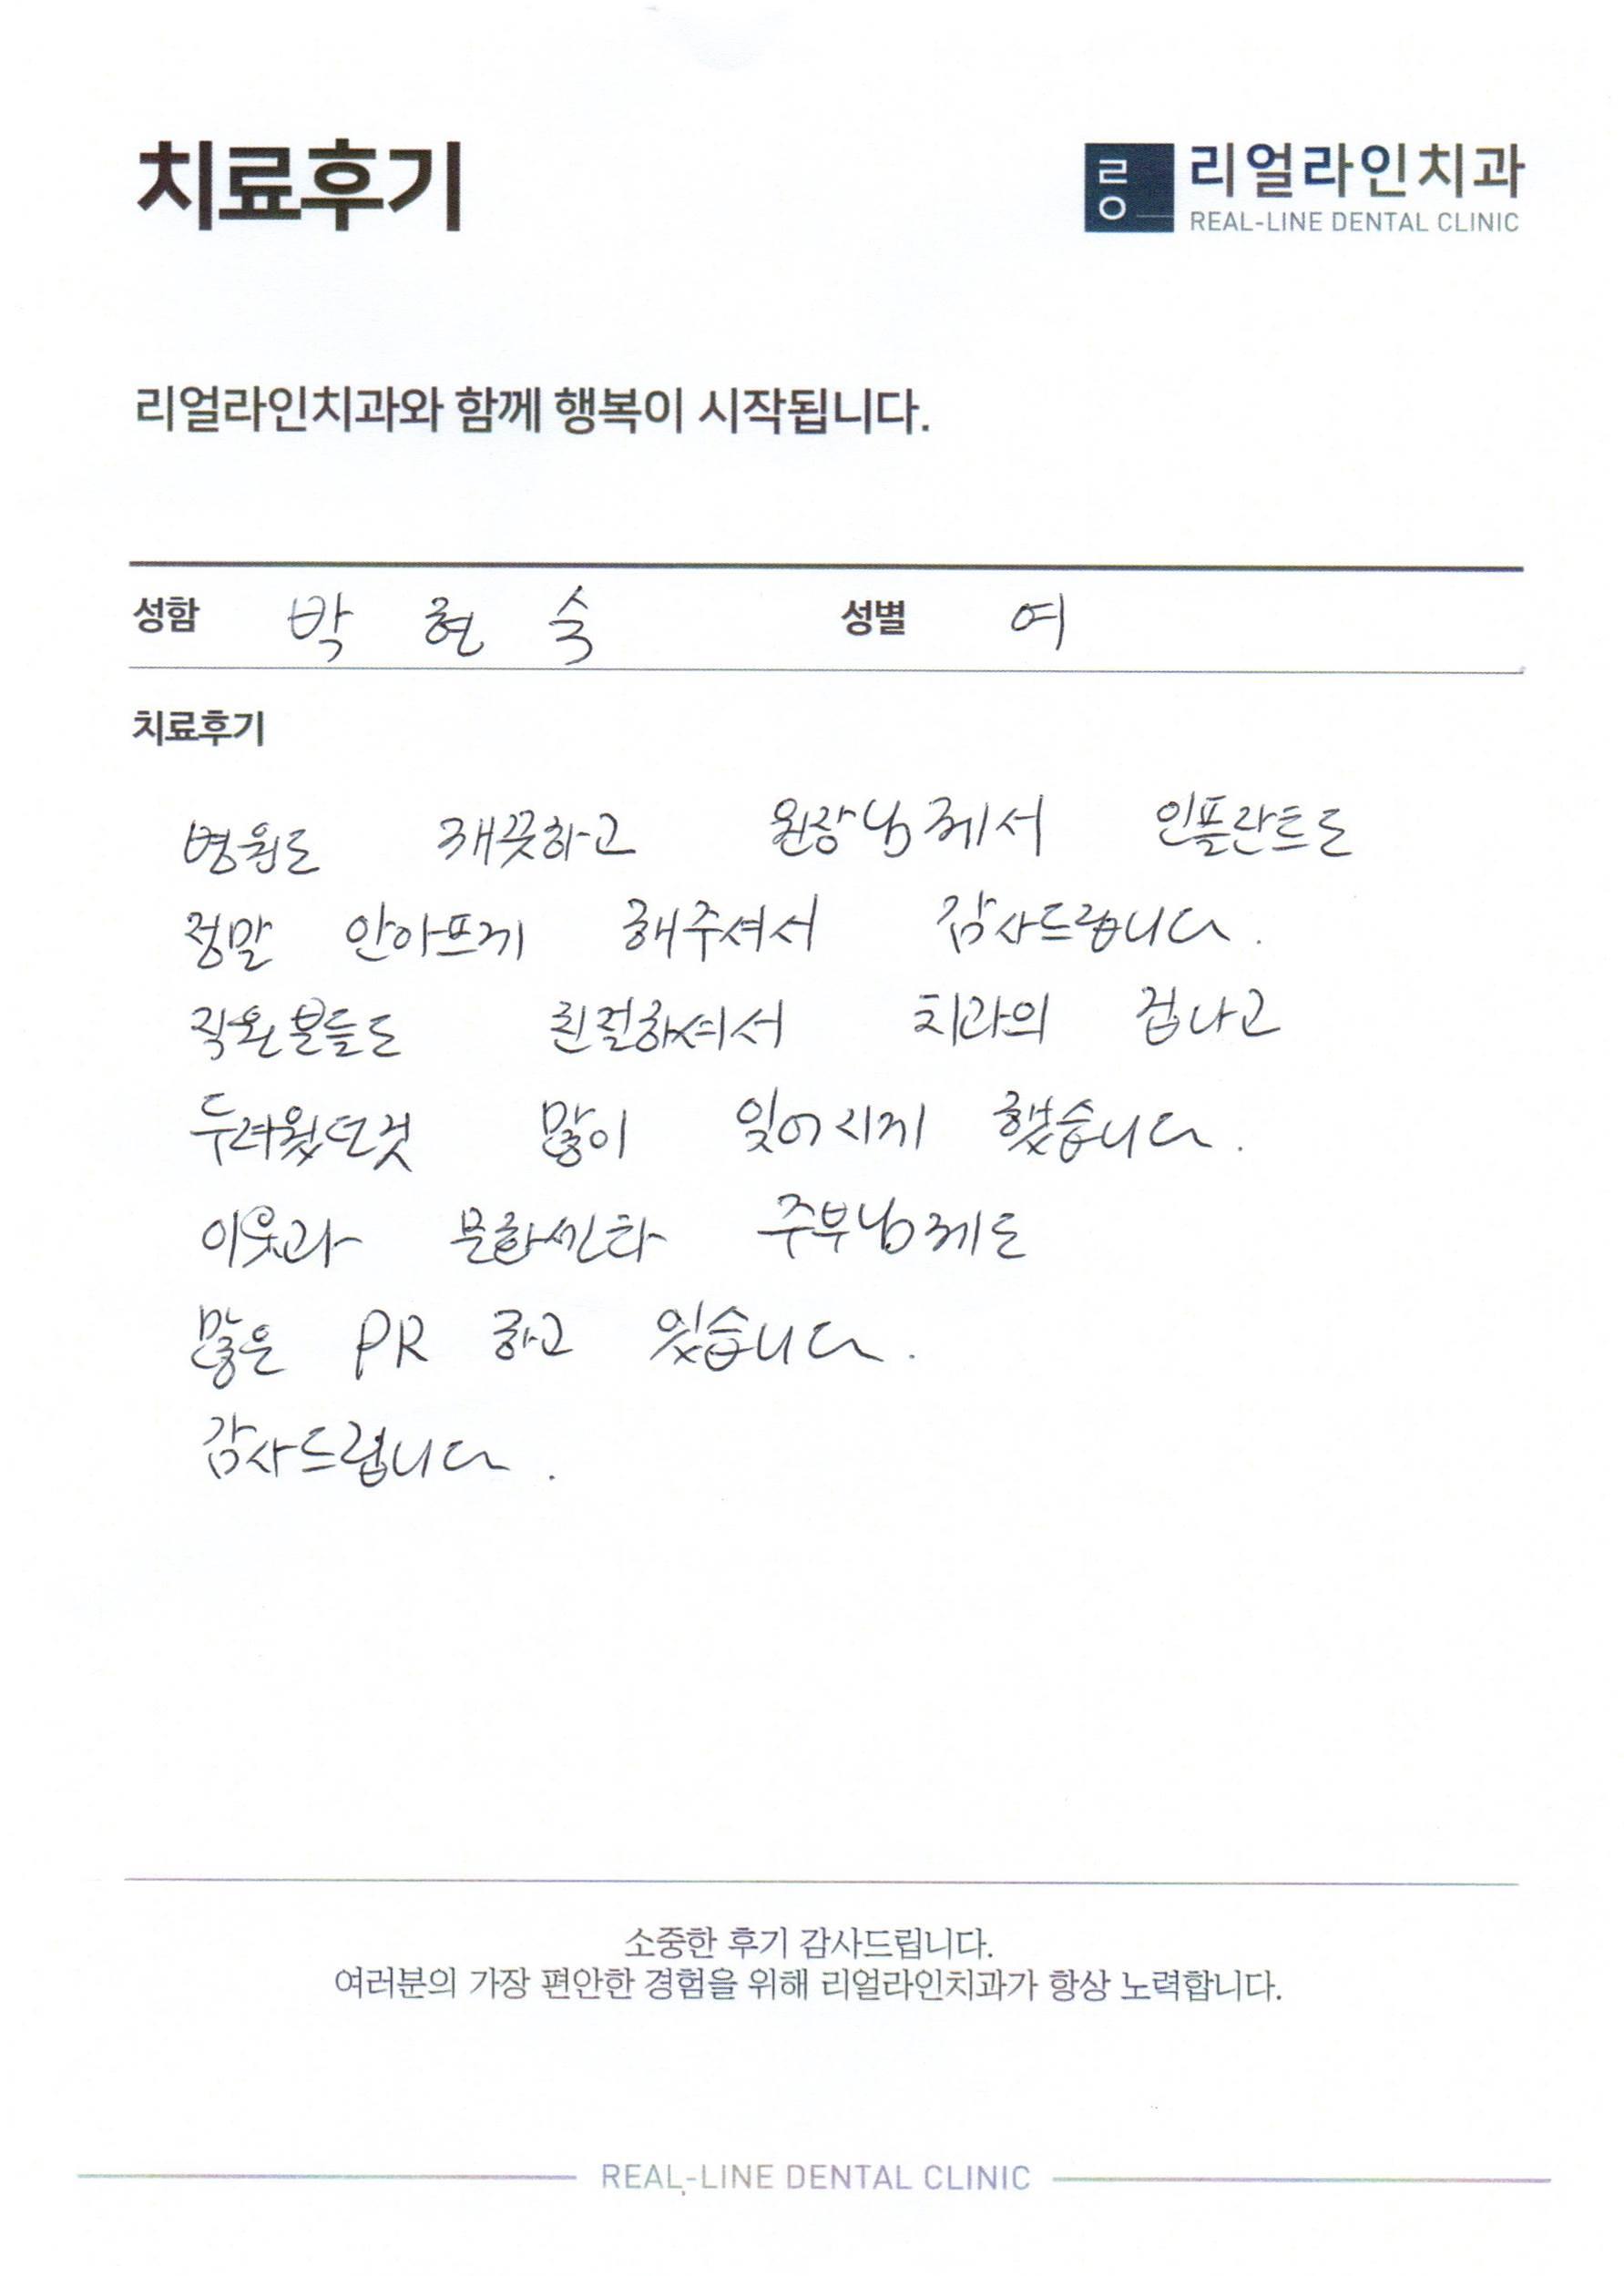 치료후기
리얼라인치과
REAL-LINE DENTAL CLINIC
리얼라인치과와 함께 행복이 시작됩니다.
성함 박현숙 성별 여
치료후기
병원도 깨끗하고 원장님께서 인플란트도
정말 안아프게 해주셔서 감사드립니다.
직원분들도 친절하셔서 치과의 겁나고
두려웠던것 많이 잊어지게 했습니다.
이웃과 문화센타 주부님께도
많은 PR 하고 있습니다.
감사드립니다.
소중한 후기 감사드립니다.
여러분의 가장 편안한 경험을 위해 리얼라인치과가 항상 노력합니다.
REAL-LINE DENTAL CLINIC